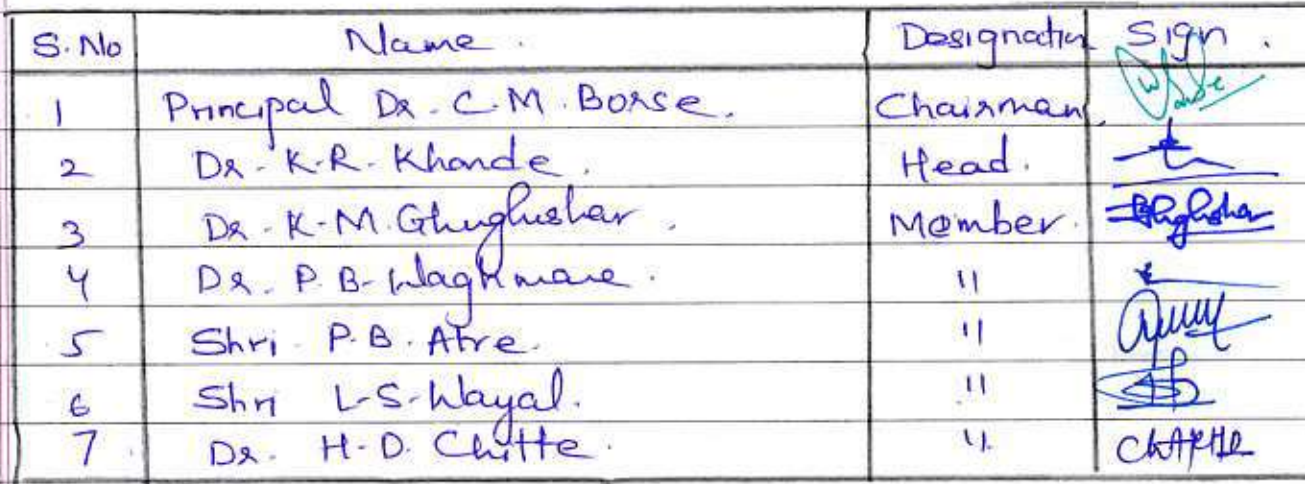 S.No Name. Designation Sign.
1 Principal Dr. C.M. Borse. Chairman.
2 Dr. K.R. Khande. Head.
3 Dr. K.M. Ghughushar. Member.
4 Dr. P.B. Waghmare. "
5 Shri P.B. Atre. "
6 Shri L.S. Wayal. "
7 Dr. H.D. Chitte. "